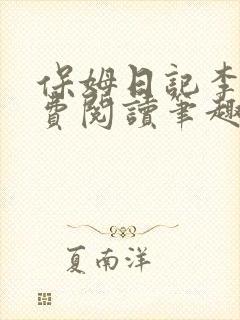 保姆日記李
費閱讀筆趣
夏南洋